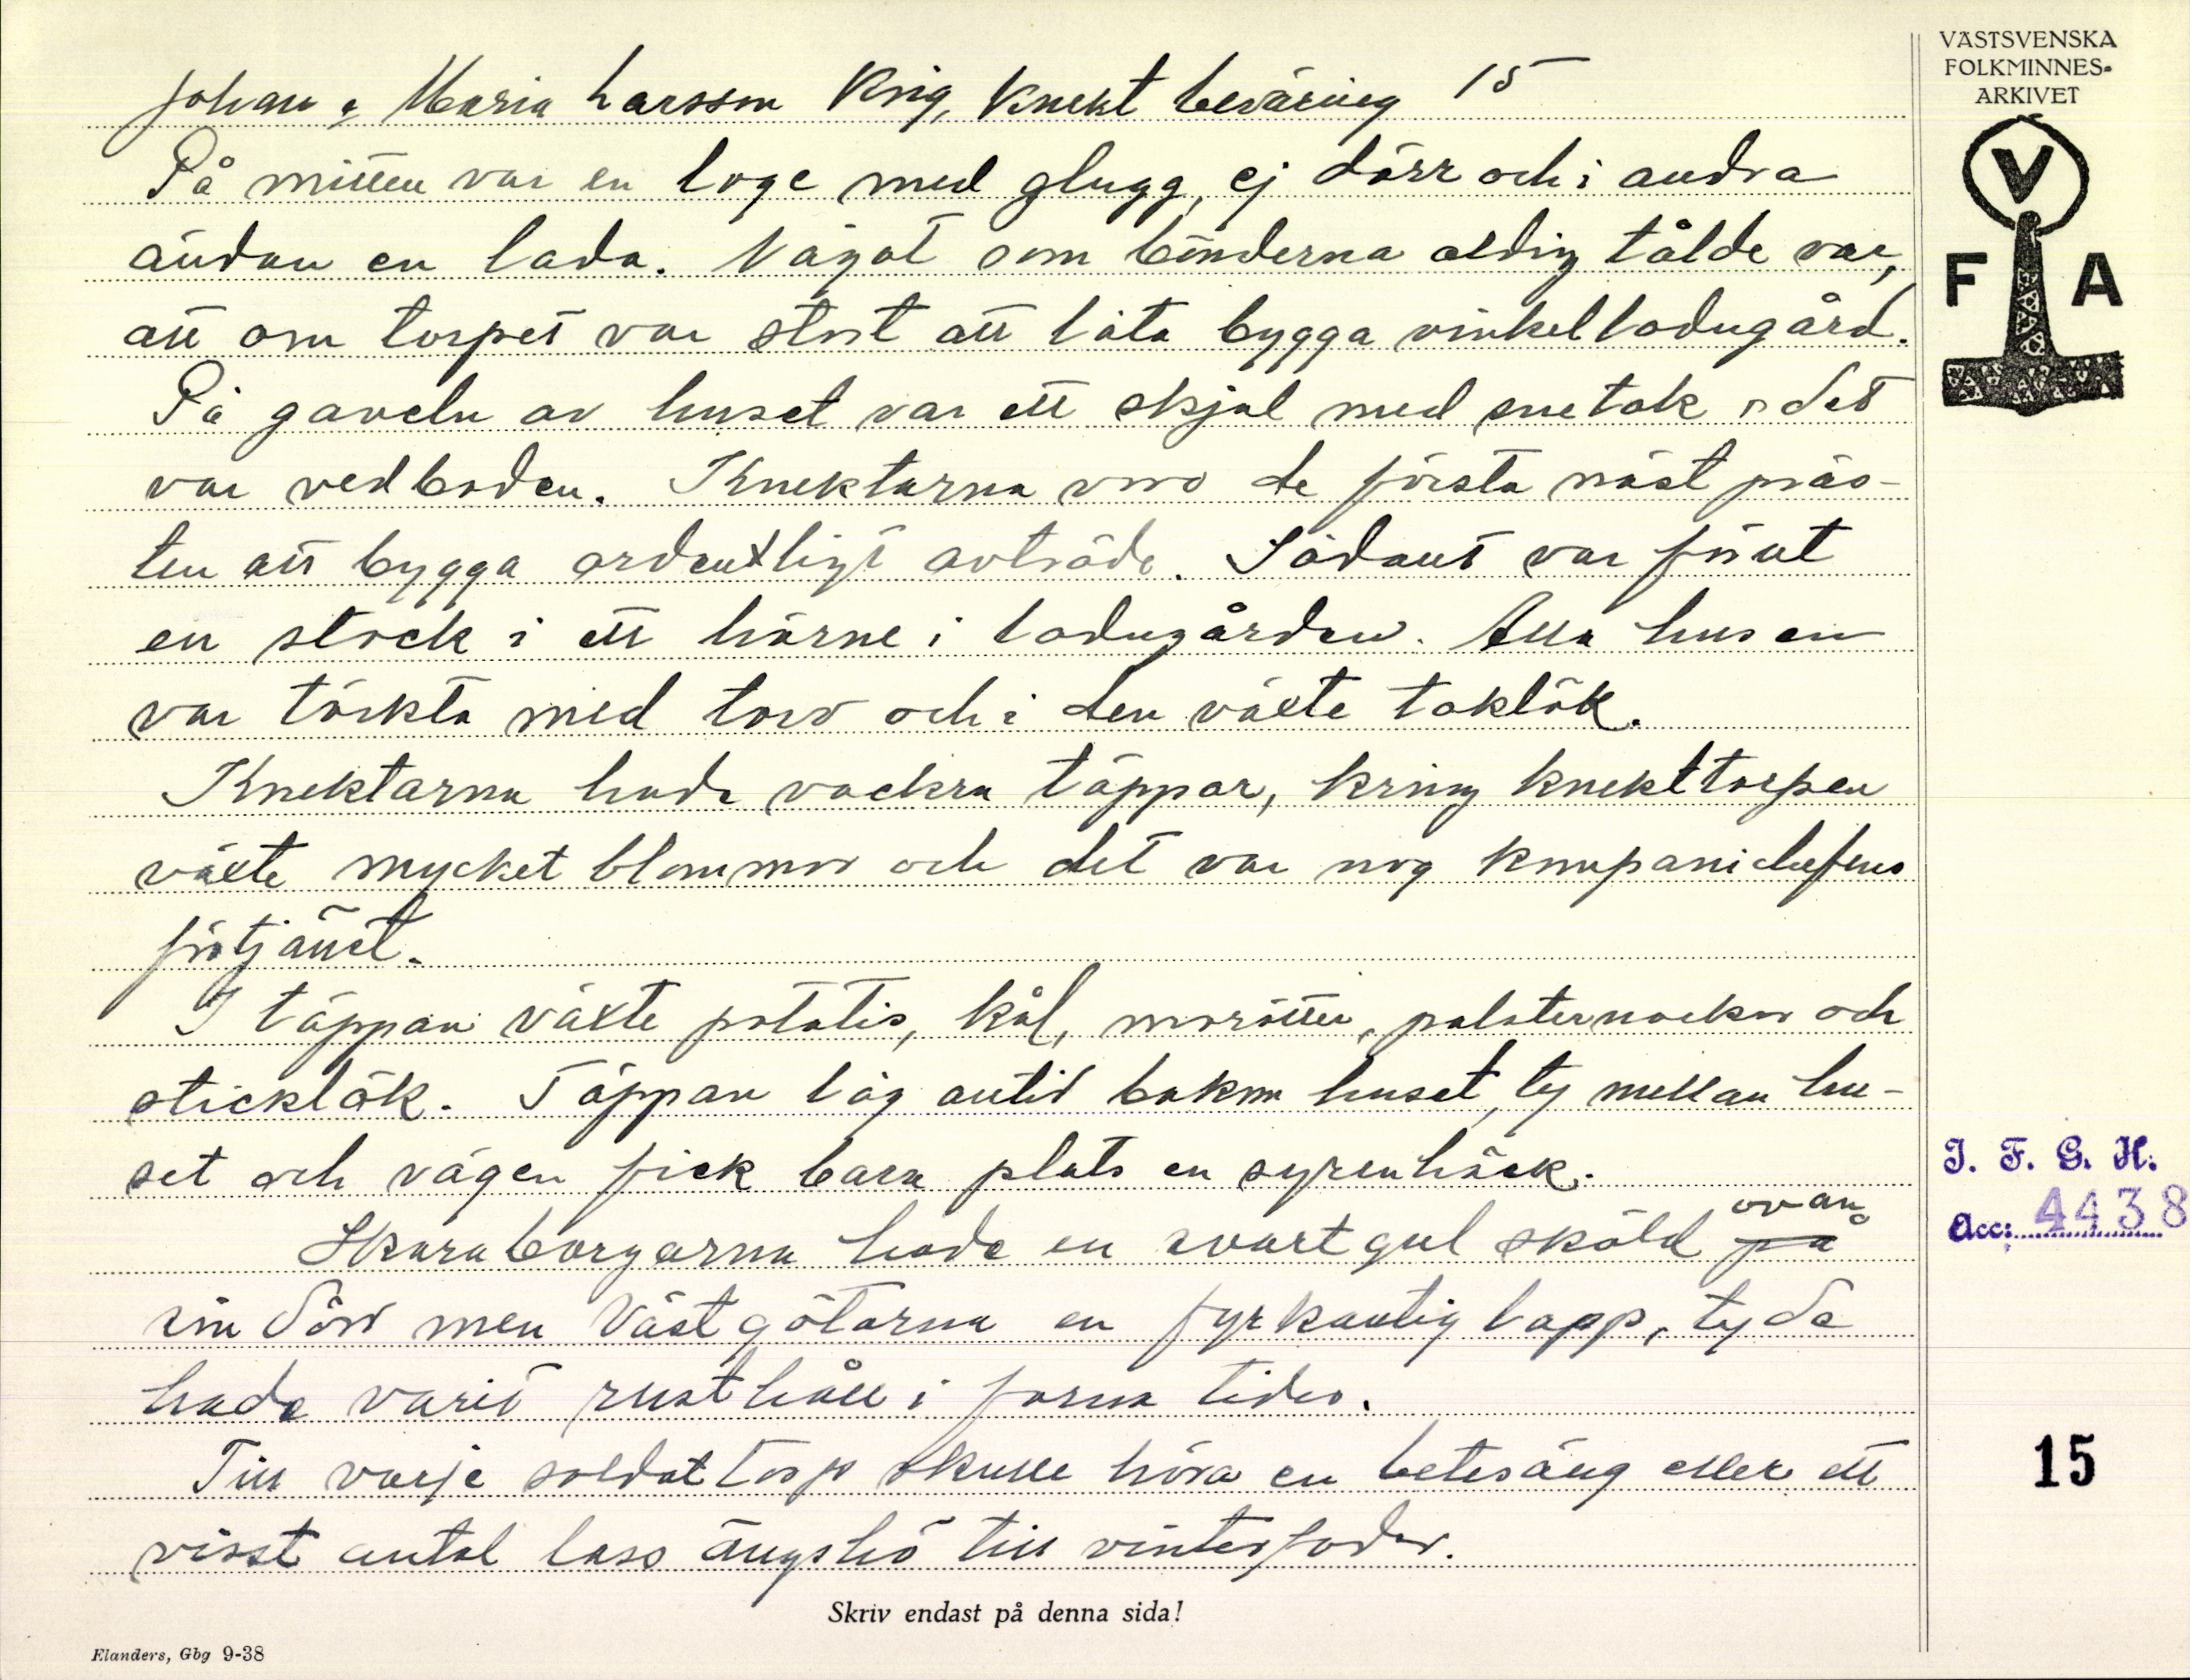 VÄSTSVENSKA
FOLKMINNES-
ARKIVET
V
F A
Johan & Maria Larsson Krig, Knekt beväring 15
På mitten var en loge med glugg, ej dörr och i andra
ändan en lada. Något som bönderna aldrig tålde var,
att om torpet var stort att låta bygga vinkelladugård.
På gaveln av huset var ett skjul med snetak o det
var vedboden. Knektarna voro de första näst präs-
ten att bygga ordentligt avträde. Sådant var förut
en stock i ett hörne i ladugården. Alla husen
var täckta med torv och i den växte taklök.
Knektarna hade vackra täppor, kring knekttorpen
växte mycket blommor och det var nog kompanichefens
förtjänst.
I täppan växte potatis, kål, morötter, palsternackor och
sticklök. Täppan låg alltid bakom huset, ty mellan hu-
set och vägen fick bara plats en syrenhäck.
Skaraborgarna hade en svartgul sköld ovan på
sin dörr men Västgötarna en fyrkantig lapp, ty de
hade varit rusthåll i forna tider.
Till varje soldattorp skulle höra en betesäng eller ett
visst antal lass ängshö till vinterfoder.
I. F. G. H.
Acc: 4438
15
Skriv endast på denna sida!
Elanders, Gbg 9-38